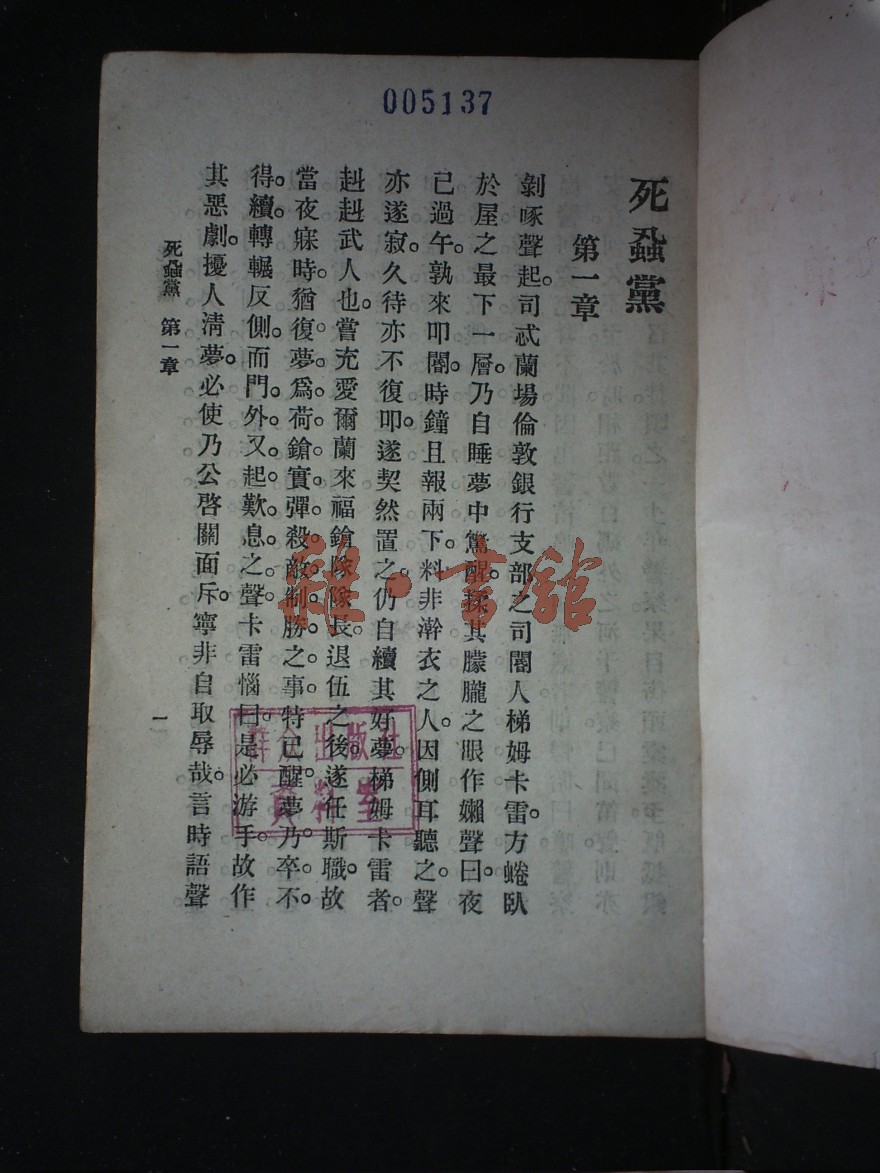 005137
死蝨黨
第一章
剝啄聲起。司忒蘭場倫敦銀行支部之司閽人梯姆卡雷。方蜷臥
於屋之最下一層。乃自睡夢中驚醒。揉其朦朧之眼作嬾聲曰。夜
已過午。孰來叩閽。時鐘且報兩下。料非澣衣之人。因側耳聽之。聲
亦遂寂。久待亦不復叩。遂契然置之。仍自續其好夢。梯姆卡雷者。
赳赳武人也。嘗充愛爾蘭來福鎗隊隊長。退伍之後。遂任斯職。故
當夜寐時。猶復夢爲荷鎗實彈。殺敵制勝之事。特已醒夢。乃卒不
得續。轉輾反側。而門外又起歎息之聲。卡雷惱曰。是必游手。故作
其惡劇。擾人淸夢。必使乃公啓關面斥。寧非自取辱哉。言時語聲
死蝨黨 第一章
一
雜·書館
群众出版社
資料室